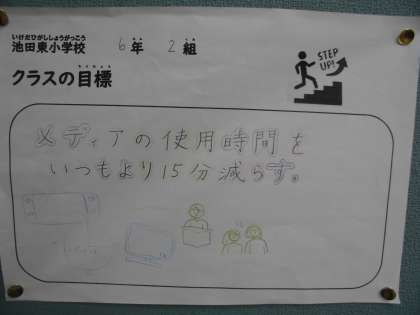 いけだひがししょうがっこう
池田東小学校 6年 2組
クラスの目標
STEP UP!
メディアの使用時間を
いつもより15分減らす。